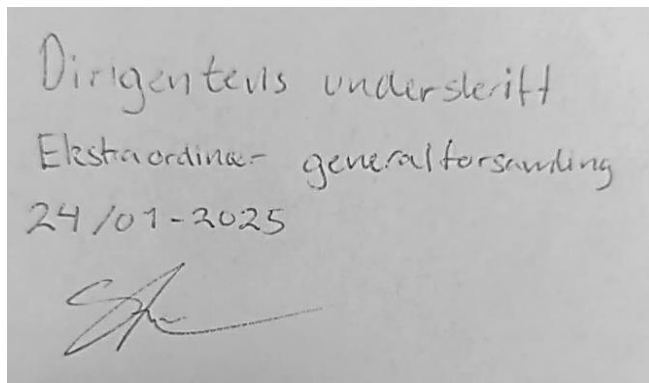 Dirigentens underskrift
Ekstraordinær generalforsamling
24/01-2025